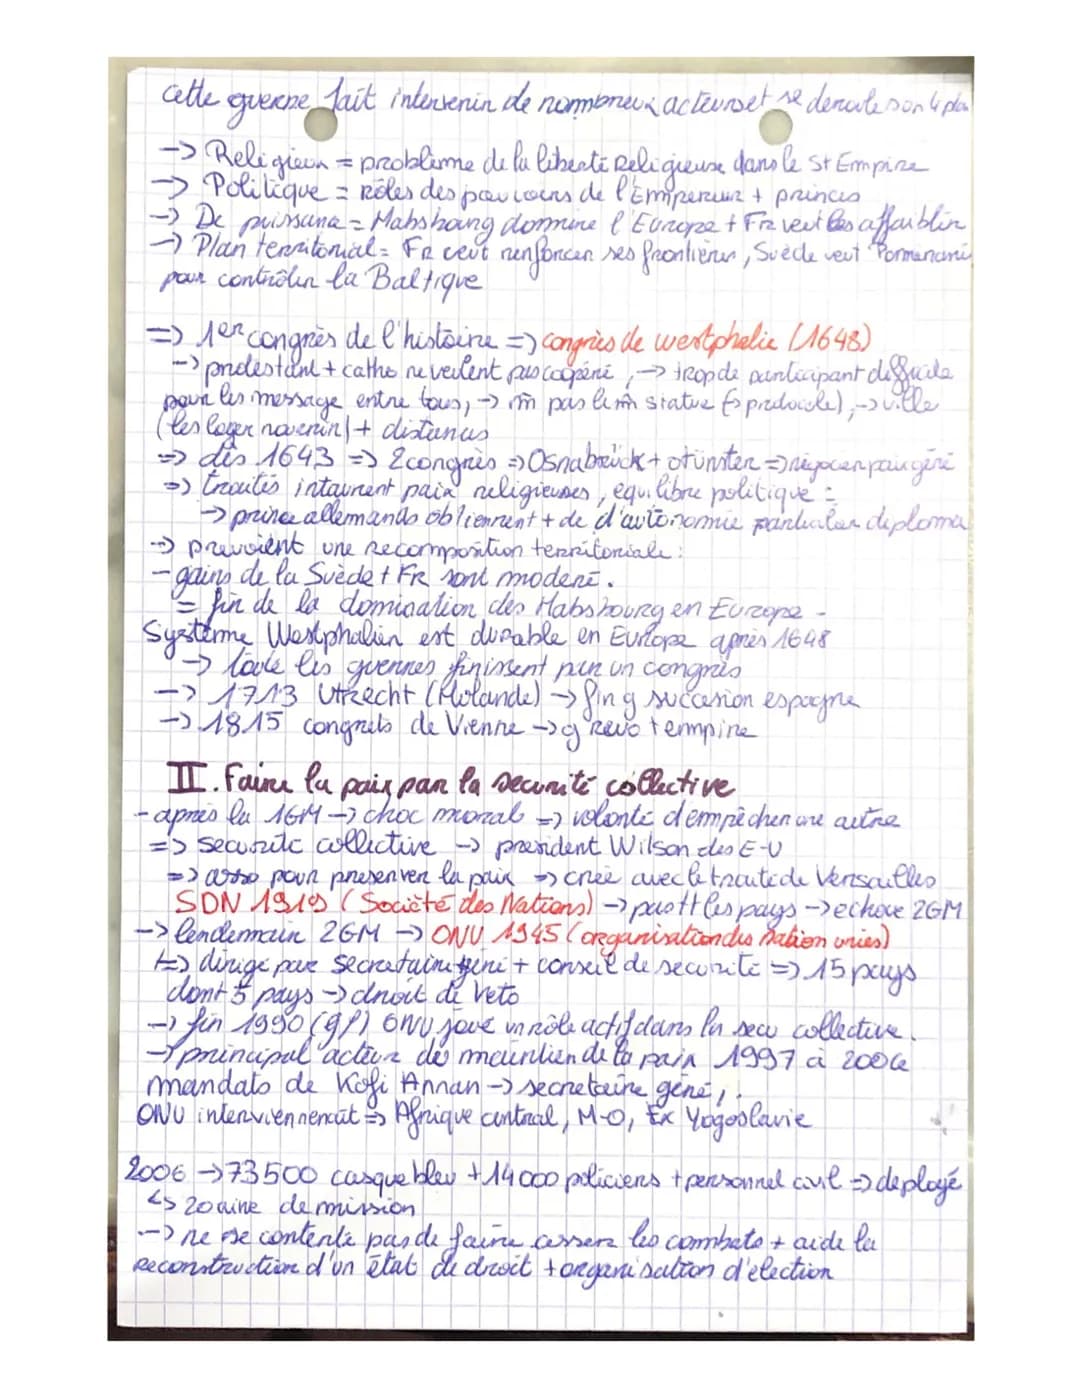 cette guerre fait intervenir de nombreux acteurs et se deroule sur 4 plan
-> Religieux = problème de la liberté Religieuse dans le St Empire
-> Politique = Rôles des pouvoirs de l'Empereur + princes
-> De puissance = Habsbourg domine l'Europe + Fr veut les affaiblir
-> Plan territorial = FR veut renforcer ses frontières, Suède veut Pomeranie
pour contrôler la Baltique
=> 1er congrès de l'histoire => congrès de westphalie (1648)
-> protestant + catho ne veulent pas coopéré, -> trop de participant difficile
pour les message entre tous, -> m̂ pas le m̂ statue (protocole), -> ville
(les loger nourrir) + distances
=> dès 1643 => 2 congrès => Osnabrück + Münster => négocier paix géné
=> traités instaurent paix religieuses, equilibre politique :
-> prince allemands obtiennent + de d'autonomie particulier diploma
-> prevoient une recomposition territoriale :
- gains de la Suède + FR sont moderé.
= fin de la domination des Habsbourg en Europe -
Système Westphalien est durable en Europe après 1648
-> toute les guerres finissent par un congrès
-> 1713 Utrecht (Holande) -> fin g succesion espagne
-> 1815 congrets de Vienne -> g revo + empire
II. Faire la paix par la securité collective
- après la 1GM -> choc moral => volonté d'empêcher une autre
=> securité collective -> president Wilson des E-U
=> asso pour preserver la paix => crée avec le traité de Versailles
SDN 1919 (Société des Nations) -> pas tt les pays -> echoue 2GM
-> lendemain 2GM -> ONU 1945 (organisation des nation unies)
=> dirigé par secretaire géné + conseil de securité => 15 pays
dont 5 pays -> droit de Veto
-> fin 1990 (gf) ONU joue un rôle actif dans la secu collective.
-> principal acteur de maintien de la paix 1997 à 2006
mandats de Kofi Annan -> secretaire géné,.
ONU interviennent => Afrique central, M-O, Ex Yogoslavie
2006 -> 73500 casque bleu + 14000 policiers + personnel civil => deployé
↳ 20aine de mission
-> ne se contente pas de faire cesser les combats + aide la
Reconstruction d'un état de droit + organisation d'election